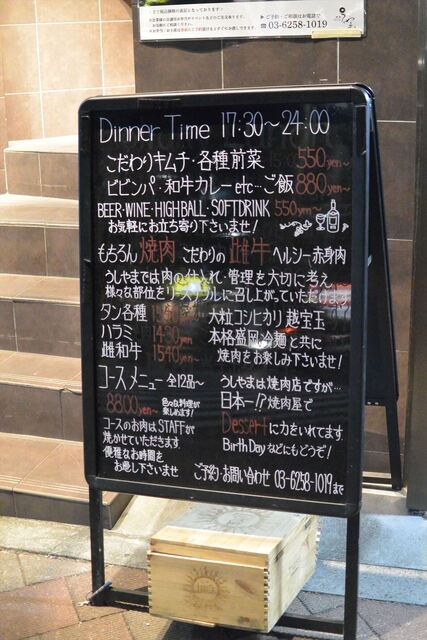 ご予約・ご相談はお電話で
03-6258-1019
Dinner Time 17:30〜24:00
こだわりキムチ・各種前菜 550yen〜
ビビンパ・和牛カレー etc…ご飯 880yen〜
BEER・WINE・HIGHBALL・SOFTDRINK 550yen〜
お気軽にお立ち寄り下さいませ!
もちろん焼肉 こだわりの雌牛 ヘルシー赤身肉
うしやまでは肉の仕入れ・管理を大切に考え
様々な部位をリーズナブルに召し上がっていただけます
タン各種
ハラミ 1430yen
雌和牛 1540yen〜
大粒コシヒカリ越宝玉
本格盛岡冷麺と共に
焼肉をお楽しみ下さいませ!
コースメニュー 全12品〜
8800yen〜 色々な料理が楽しめます!
コースのお肉はSTAFFが
焼かせていただきます
優雅なお時間を
お過し下さいませ
うしやまは焼肉店ですが…
日本一!?焼肉屋で
Dessertに力をいれてます
BirthDayなどにもどうぞ!
ご予約・お問い合わせ 03-6258-1019まで